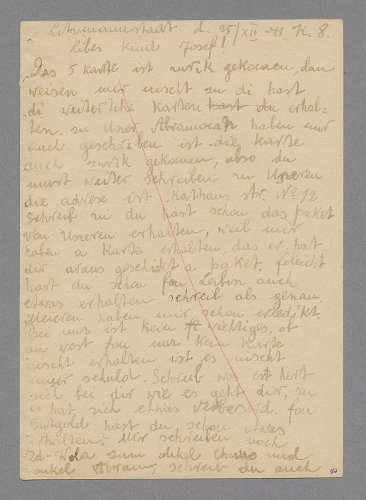 Litzmannstadt d. 25/XII-41 K 8.
Libes Kind Josef!
Das 5 karte ist zurik gekomen, dan
weisen mir nischt zu di hast
di weiterdike karten hast du erhal-
ten. zu Uner Abramocah haben mir
auch geschriben ist die karte
auch zurik gekomen, also du
must weiter schreiben zu Uneren
die adrese ist Rathaus str. № 12
schreib zu du hast schon das paket
von Uneren erhalten, weil mir
haben a karte erhalten, das er hat
dir araus geschikt a paket. foleicht
hast du schon fon Leibis auch
etwas erhalten schreib als genau
haben mir schon erledikt.
Bei uns ist kein wichtiges, ob
du west fon mir kein karte
nischt erhalten ist es nischt
unzer schuld. Schreib was est hert
sich bei dir wie es geht dir, zu
es hat sich etwas verbesert. fon
hast du schon etwas
erhalten. Mir schreiben noch
Zd-Wola zum onkel und
onkel Abram, schreib du auch
80